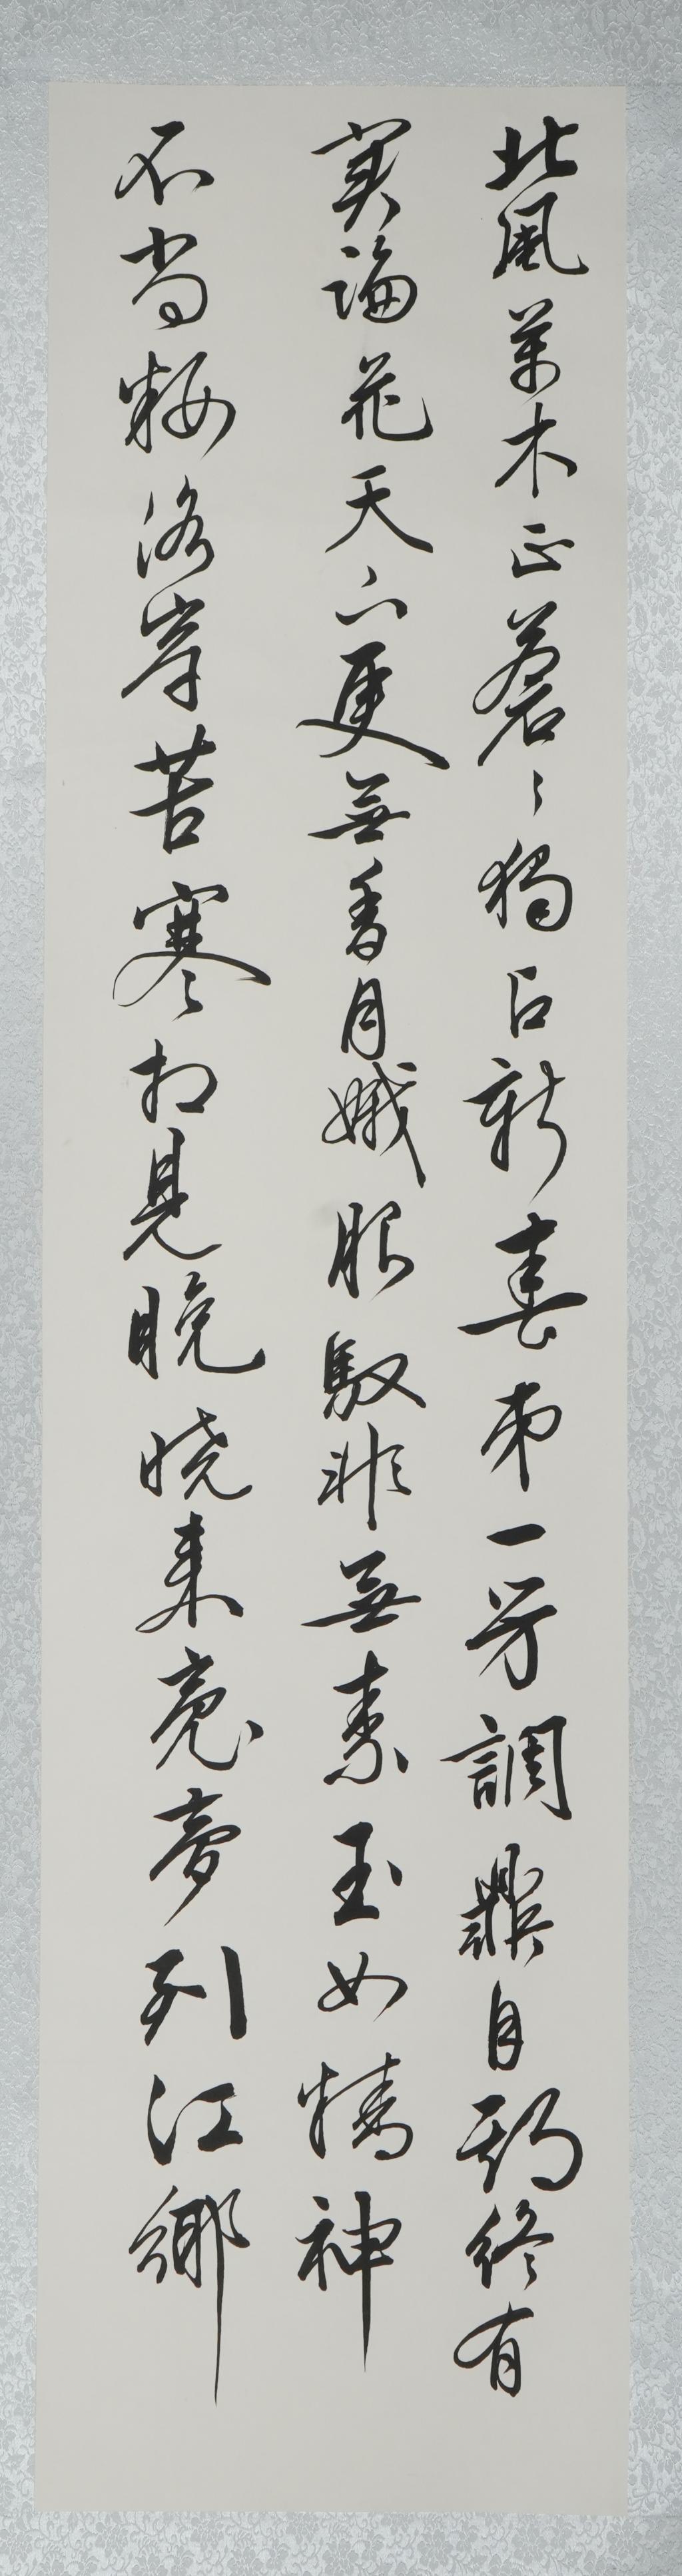 北風萬木正蒼々獨占新春第一芳調鼎自期終有
實論花天下更無香月娥服馭非無素玉女精神
不尚妝洛岸苦寒相見晚曉來魂夢到江鄉